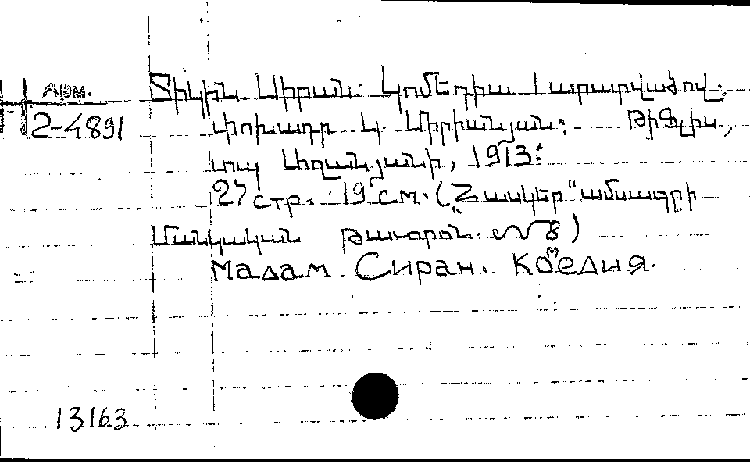 Арм.
2-4891
Տիկին Սիրան: Կոմեդիա 1 արարվածով.
փոխադր Կ. Միրիանյան: Թիֆլիս,
տպ Աղանյանի, 1913:
27 стр. 19 см. („Հասկեր" ամսագրի
Մանկական թատրոն. № 8)
Мадам Сиран. Комедия.
13163